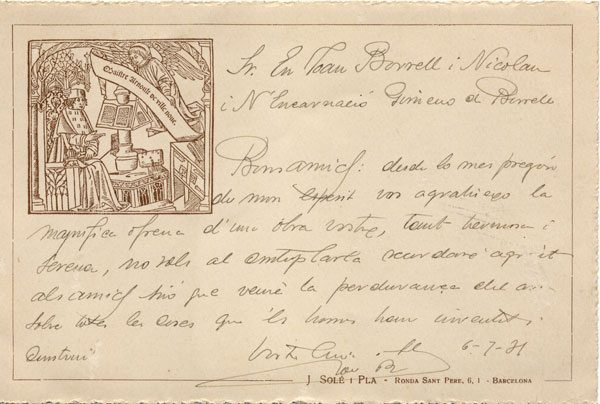 Maistre Arnould de ville nove
Sr. En Joan Borrell i Nicolau
i N'Encarnació Gimeno d Borrell
Bons amics: desde lo mes pregón
de mon esperit vos agraheigo la
magnífica ofrena d'una obra vostra, tant hermosa i
serena, no sols al contemplarla recordaré
als amics sinó que veuré la perdurança del
sobre totes les coses que 'ls homes han inventat
6-7-31
J SOLÉ I PLA - RONDA SANT PERE, 6, 1 - BARCELONA